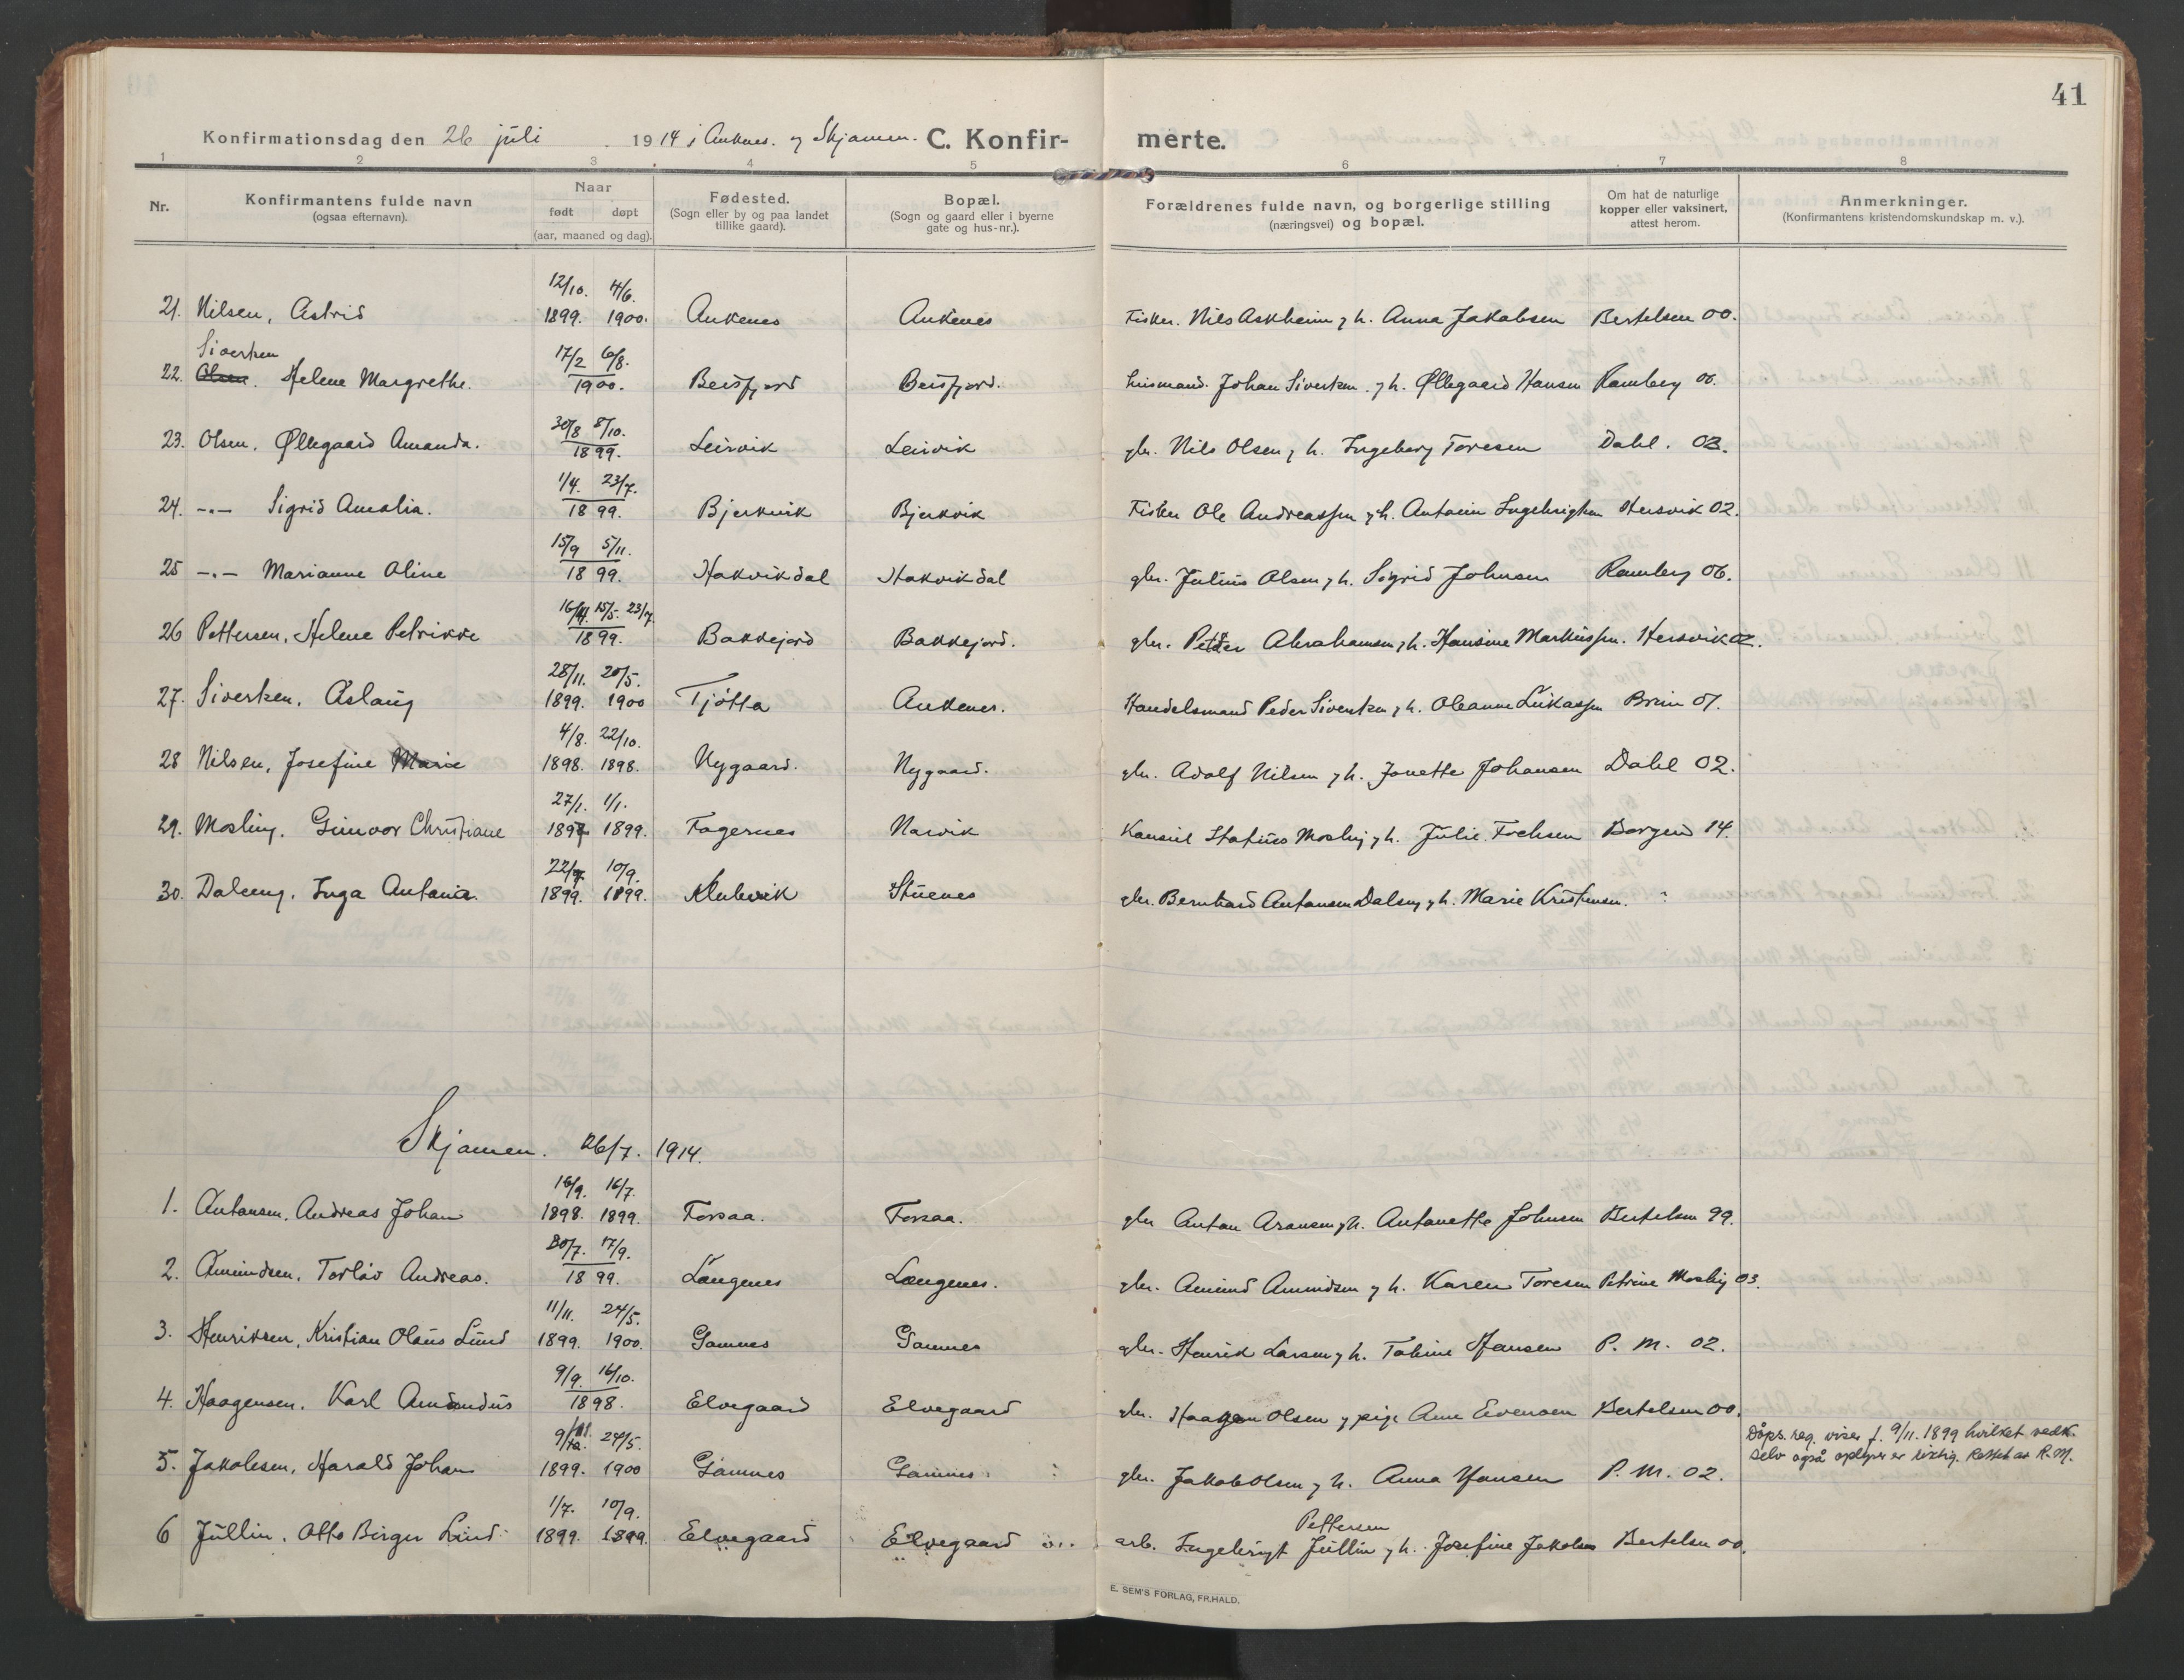 41
Konfirmationsdag den 26 juli 1914 i Ankenes. og Skjomen. C. Konfir- merte.
1 2 3 4 5 6 7 8
Nr. Konfirmantens fulde navn (ogsaa efternavn). Naar født døpt (aar, maaned og dag). Fødested. (Sogn eller by og paa landet tillike gaard). Bopæl. (Sogn og gaard eller i byerne gate og hus-nr.). Forældrenes fulde navn, og borgerlige stilling (næringsvei) og bopæl. Om hat de naturlige kopper eller vaksinert, attest herom. Anmerkninger. (Konfirmantens kristendomskundskap m. v.).
12/10. 4/6.
21. Nilsen, Astrid 1899. 1900. Ankenes Ankenes Fisker. Nils Askheim og h. Anna Jakobsen Bertelsen 00.
Sivertsen 17/2 6/8.
22. Olsen. Helene Margrethe. 1900. Beisfjord Beisfjord. Johan Sivertsen og h. Øllegaard Hansen Ramberg 06.
30/8 8/10.
23. Olsen. Øllegaard Amanda. 1899. Leirvik Leirvik gbr. Nils Olsen og h. Ingeborg Toresen Dahl. 03.
1/4. 23/7.
24. -"- Sigrid Amalia. 1899. Bjerkvik Bjerkvik Fisker Ole Andreassen og h. Antonie Ingebrigtsen Hersvik 02.
15/9 5/11.
25 -"- Marianne Oline 1899. Hakvikdal Hakvikdal gbr. Julius Olsen og h. Sigrid Johnsen Ramberg 06.
15/5. 23/7.
26 Pettersen, Helene Petrikke 1899. Bakkejord Bakkejord. gbr. Petter Abrahamsen og h. Hansine Markussen. Hersvik 02.
28/11. 20/5.
27. Sivertsen. Aslaug 1899. 1900 Tjøtta Ankenes. Handelsmand Peder Sivertsen og h. Oleanne Lukassen Brun 07.
4/8. 22/10.
28 Nilsen, Josefine Marie 1898. 1898. Nygaard. Nygaard. gbr. Adolf Nilsen og h. Jonette Johansen Dahl 02.
27/1. 1/1.
29. Mosling. Gunvor Christiane 1899. Fagernes Narvik Statius Mosling og h. Julie Borgen 14.
10/9.
30. Daleng. Inga Antonia. 1899. 1899. Klubvik Stuenes gbr. Bernhard Antonsen Daleng og h. Marie Kristensen.
Skjomen. 26/7. 1914.
16/9. 16/7.
1. Antonsen. Andreas Johan 1898. 1899. Forsaa. Forsaa. gbr Anton Aronsen og h. Antonette Johnsen Bertelsen 99.
30/7. 17/9.
2. Amundsen. Torlov Andreas. 1899. Langenes Langenes. gbr. Amund Amundsen og h. Karen Toresen Petrine Mosling 03.
11/11. 24/5.
3. Henriksen, Kristian Olaus Lund 1899. 1900. Gamnes Gamnes gbr. Henrik Larsen og h. Tobine Hansen P. M. 02.
9/9. 16/10.
4. Haagensen. Karl Amandus 1898. Elvegaard Elvegaard gbr. Haagen Olsen og pige Anne Evensen Bertelsen 00.
24/5. Dåps. reg. viser f. 9/11. 1899 hvilket vedk.
5. Jakobsen, Harald Johan 1899. 1900 Gamnes Gamnes gbr. Jakob Olsen og h. Anna Hansen P. M. 02. selv også oplyser er riktig. Rettet av R.M.
1/7. 10/9. Pettersen
6 Jullin. Otto Birger Lund 1899. 1899. Elvegaard Elvegaard arb. Ingebrigt Jullin og h. Josefine Jakobsen Bertelsen 00.
E. SEM'S FORLAG, FR.HALD.